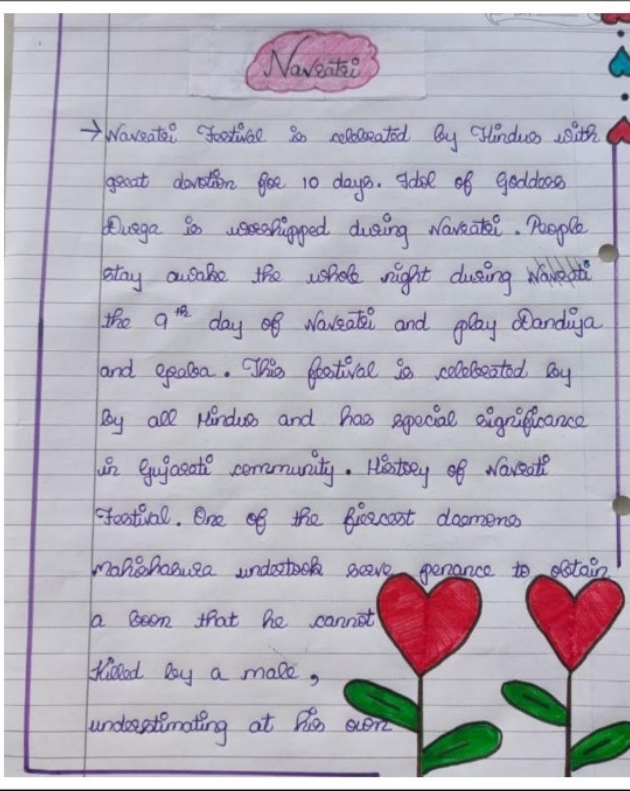 Navratri
→ Navratri Festival is celebrated by Hindus with
great devotion for 10 days. Idol of Goddess
Durga is worshipped during Navratri. People
stay awake the whole night during Navrati
the 9th day of Navratri and play Dandiya
and graba. This festival is celebrated by
by all Hindus and has special significance
in Gujarati community. History of Navrati
Festival. One of the fiercest daemons
mahishasura undertook serve penance to obtain
a boon that he cannot
Killed by a male,
understimating at his own